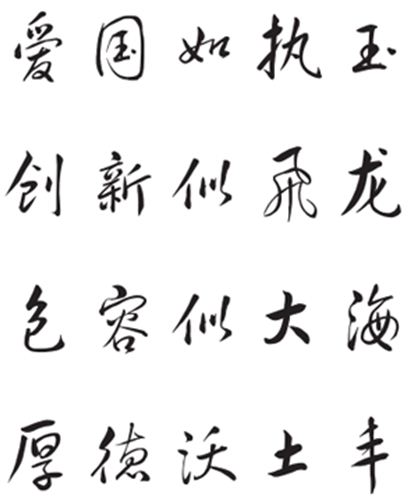 爱国如执玉
创新似飛龙
包容似大海
厚德沃土丰